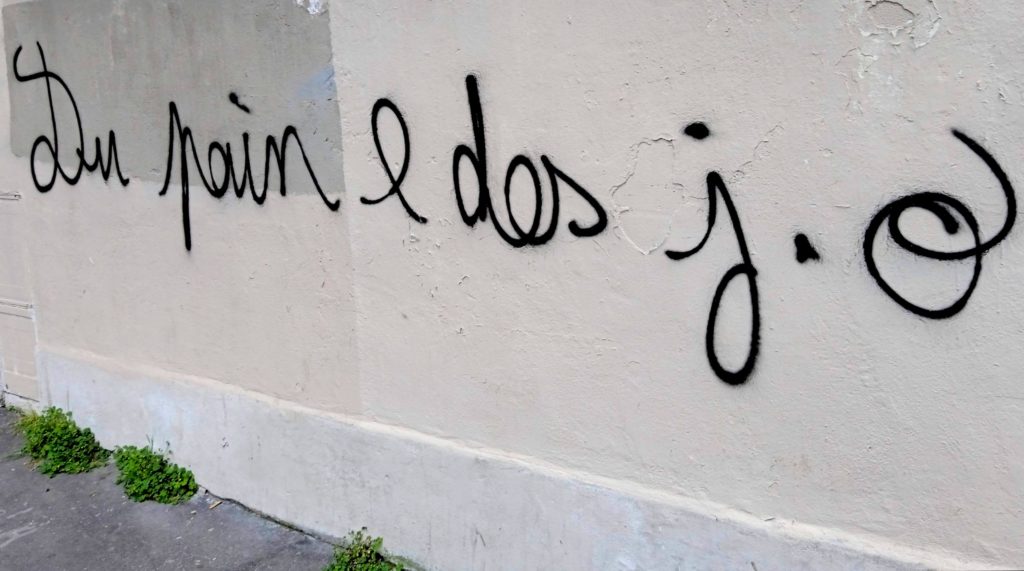 Du pain & des j.O